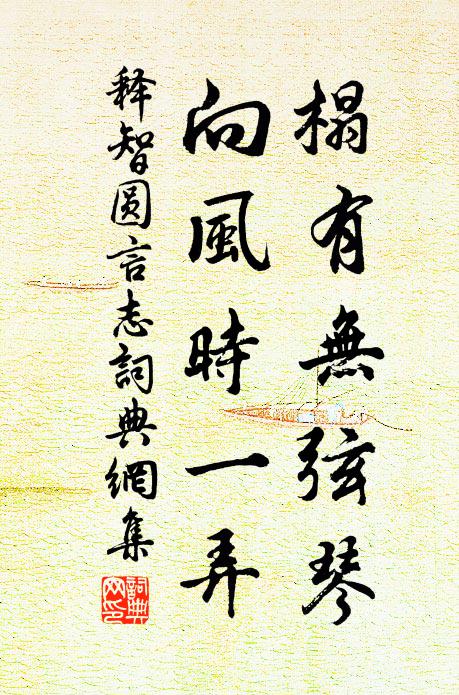 榻有無弦琴
向風時一弄
释智圆言志詞典網集
詞典
网印